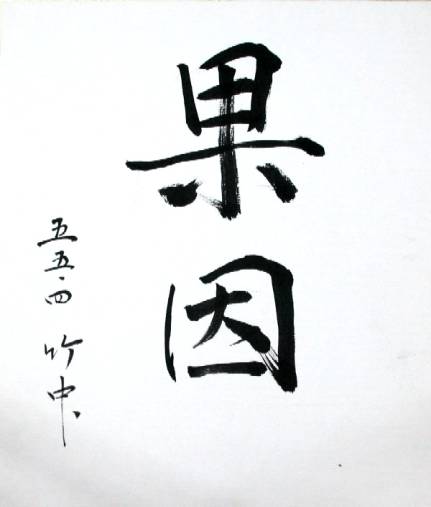 果因
五五・四 竹中